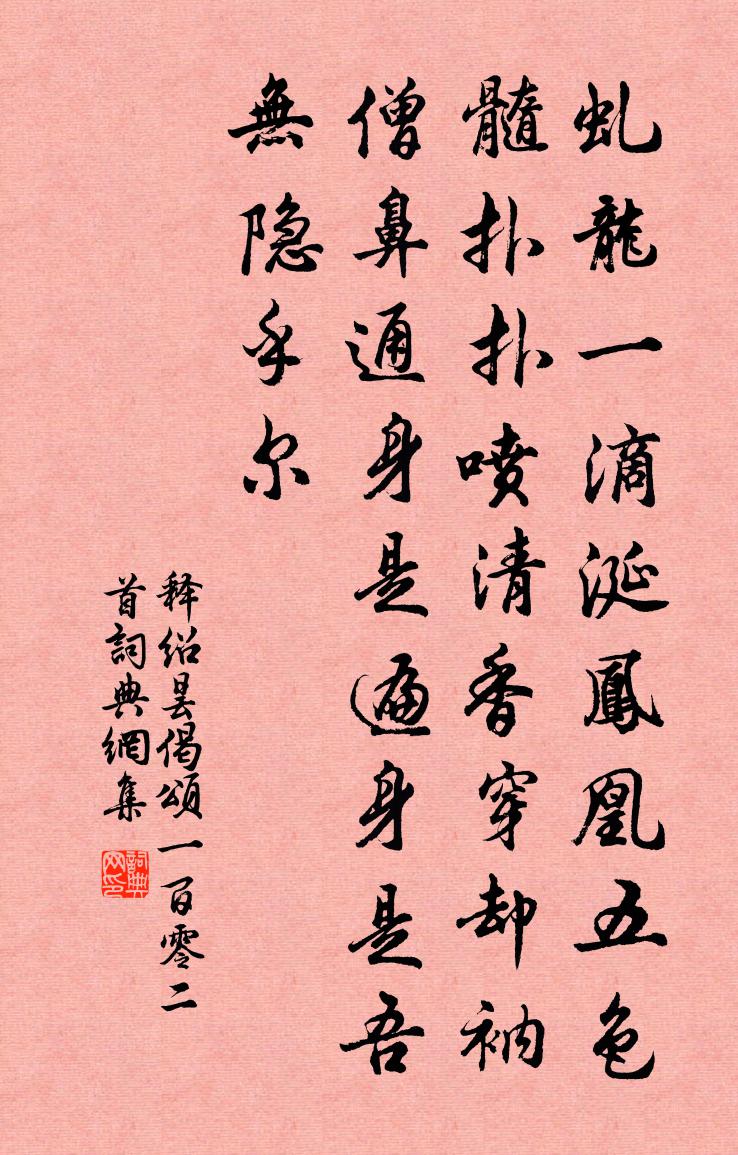 虬龍一滴涎鳳凰五色
髓扑扑噴清香穿却衲
僧鼻通身是遍身是吾
無隐乎尔
释绍昙偈頌一百零二
首詞典網集
詞典网印